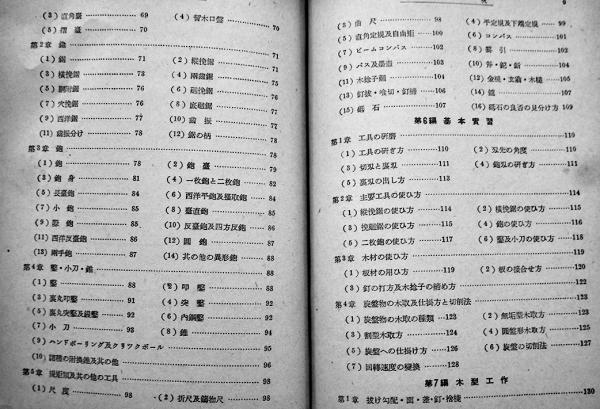 (3) 直角臺 69 (4) 留木口盤 70
(5) 摺臺 70
第2章 鋸 71
(1) 鋸 71 (2) 縱挽鋸 71
(3) 橫挽鋸 73 (4) 兩齒鋸 75
(5) 胴附鋸 76 (6) 畦挽鋸 76
(7) 穴挽鋸 76 (8) 底廻鋸 77
(9) 西洋鋸 77 (10) 齒振 77
(11) 齒振分け 78 (12) 鋸の柄 78
第3章 鉋 78
(1) 鉋 78 (2) 鉋臺 79
(3) 鉋身 81 (4) 一枚鉋と二枚鉋 82
(5) 長臺鉋 84 (6) 西洋平鉋及莖取鉋 84
(7) 小鉋 85 (8) 臺直鉋 85
(9) 際鉋 86 (10) 反臺鉋及四方反鉋 86
(11) 西洋反臺鉋 86 (12) 圓鉋 87
(13) 兩手鉋 87 (14) 其の他の異形鉋 88
第4章 鑿・小刀・錐 88
(1) 鑿 88 (2) 叩鑿 88
(3) 裏丸叩鑿 91 (4) 突鑿 92
(5) 裏丸突鑿及鏝鑿 92 (6) 內鋼鑿 92
(7) 小刀 93 (8) 錐 94
(9) ハンドボーリング及クリツクボール 95
(10) 諸種の附換錐及其の他 96
第5章 規矩類及其の他の工具 98
(1) 尺度 98 (2) 折尺及鑄物尺 98
次 9
(3) 曲尺 98 (4) 平定規及下端定規 99
(5) 直角定規及自由矩 100 (6) コンパス 101
(7) ビームコンパス 102 (8) 罫引 102
(9) パス及墨壺 103 (10) 斧・鉈・釿 103
(11) 木捻子廻 104 (12) 金槌・玄翁・木槌 105
(13) 釘拔・喰切・釘締 106 (14) 鑢 106
(15) 砥石 107 (16) 砥石の良否の見分け方 109
第6編 基本實習
第1章 工具の研磨 110
(1) 工具の研ぎ方 110 (2) 刃先の角度 110
(3) 切刃と裏刃 111 (4) 鉋刃の研ぎ方 111
(5) 裏刃の出し方 113
第2章 主要工具の使ひ方 114
(1) 縱挽鋸の使ひ方 114 (2) 橫挽鋸の使ひ方 115
(3) 挽廻鋸の使ひ方 115 (4) 鉋の使ひ方 116
(5) 二枚鉋の使ひ方 117 (6) 鑿及小刀の使ひ方 118
第3章 木材の使ひ方 119
(1) 板材の用ひ方 119 (2) 板の接合せ方 120
(3) 釘の打方及木捻子の締め方 122
第4章 旋盤物の木取及仕掛方と切削法 123
(1) 旋盤物の木取の種類 123 (2) 無垢型木取方 123
(3) 割型木取方 124 (4) 圓盤形木取方 125
(5) 旋盤への仕掛け方 126 (6) 旋盤の切削法 127
(7) 回轉速度の變換 128
第7編 木型工作
第1章 拔け勾配・面・釜・釘・栓棧 130